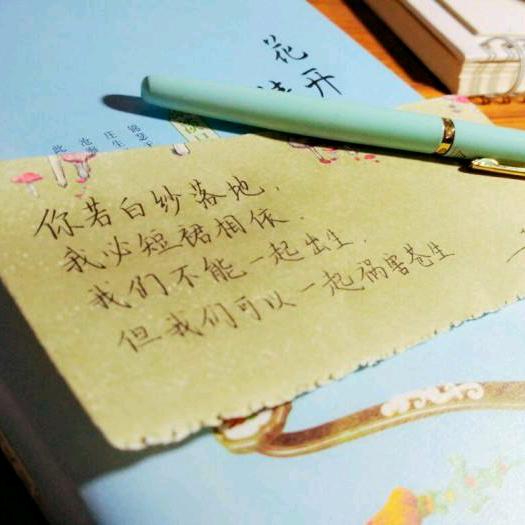 你若白纱落地，
我必短裙相依．
我们不能一起出生，
但我们可以一起祸害苍生
花
开